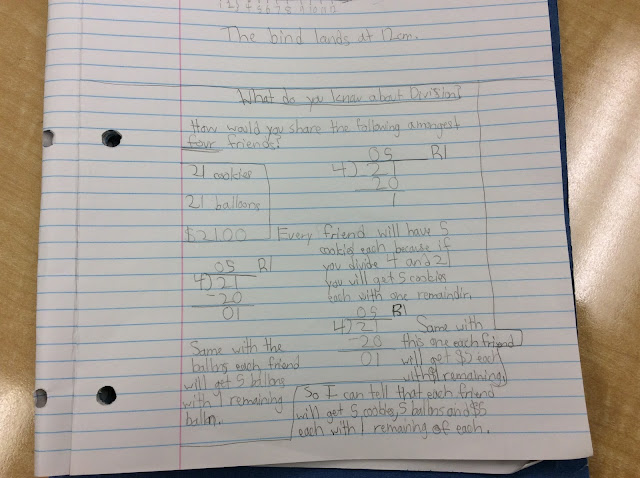 The bind lands at 12cm.
What do you know about Division?
How would you share the following amongst
four friends?
21 cookies
21 balloons
$21.00
05 R1
4)21
20
1
Every friend will have 5
cookies each because if
you divide 4 and 21
you will get 5 cookies
each with one remaindir.
05 R1
4)21
-20
01
Same with the
ballons each friend
will get 5 ballons
with 1 remaining
ballon.
05 R1
4)21
-20
01
Same with
this one each friend
will get $5 each
with $1 remaining
So I can tell that each friend
will get 5 cookies, 5 ballons and $5
each with 1 remaining of each.